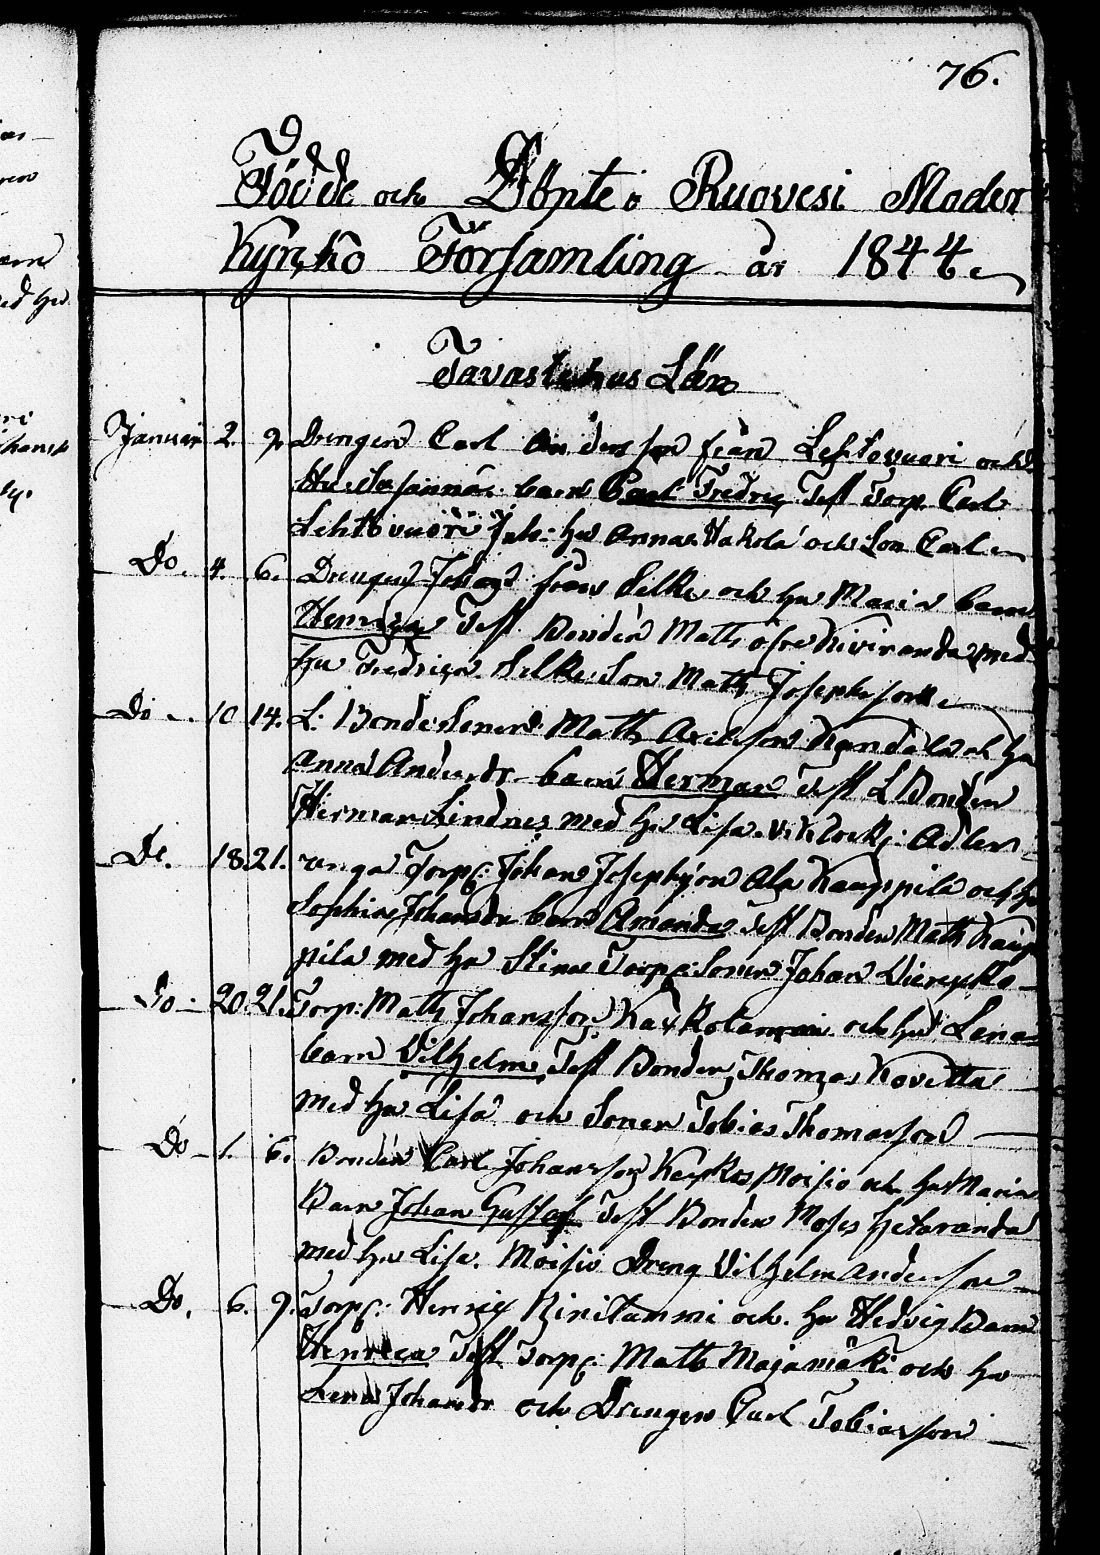 76.
Födde och Döpte i Ruovesi Moder
Kyrko Församling år 1844.
Tavastehus Län
Januari 2. 9. Drengen Carl Andersson från Lehtovuori och
Hu Susanna barn Carl Fredric Test Torp. Carl
Lehtovuori Inh: hu Anna Hakola och Son Carl
Do. 4. 6. Drengen Johan från Silke och hu Maria barn
Henrica Test Bonden Matts öfre Kiviranda med
hu Fredrica Silke Son Matts Josephsson
Do 10 14. L: Bonde Sonen Matts Axelsson Kondola och hu
Anna Andersdr barn Herman Test L Bonden
Herman Lindnes med hu Lisa
Do. 18 21. unga Torp: Johan Josephson Ala Kauppila och hu
Sophia Johansdr barn Amanda Test Bonden Matts Kaup
pila med hu Stina Torp: Sonen Johan
Do 20. 21. Torp: Matts Johansson och hu Lena
barn Vilhelm Test Bonden Thomas Kovetta
med hu Lisa och Sonen Tobias Thomasson
Do 1. 6. Bonden Carl Johansson Moisio och hu Maria
Barn Johan Gustaf Test Bonden Moses Hetaranda
med hu Lisa. Moisio Dreng Vilhelm Andersson
Do. 6. 9. Torp: Henric Rinitammi och hu Hedvig Barn
Henrica Test Torp: Matts Majamäki och hu
Lena Johansdr och Drengen Carl Tobiasson